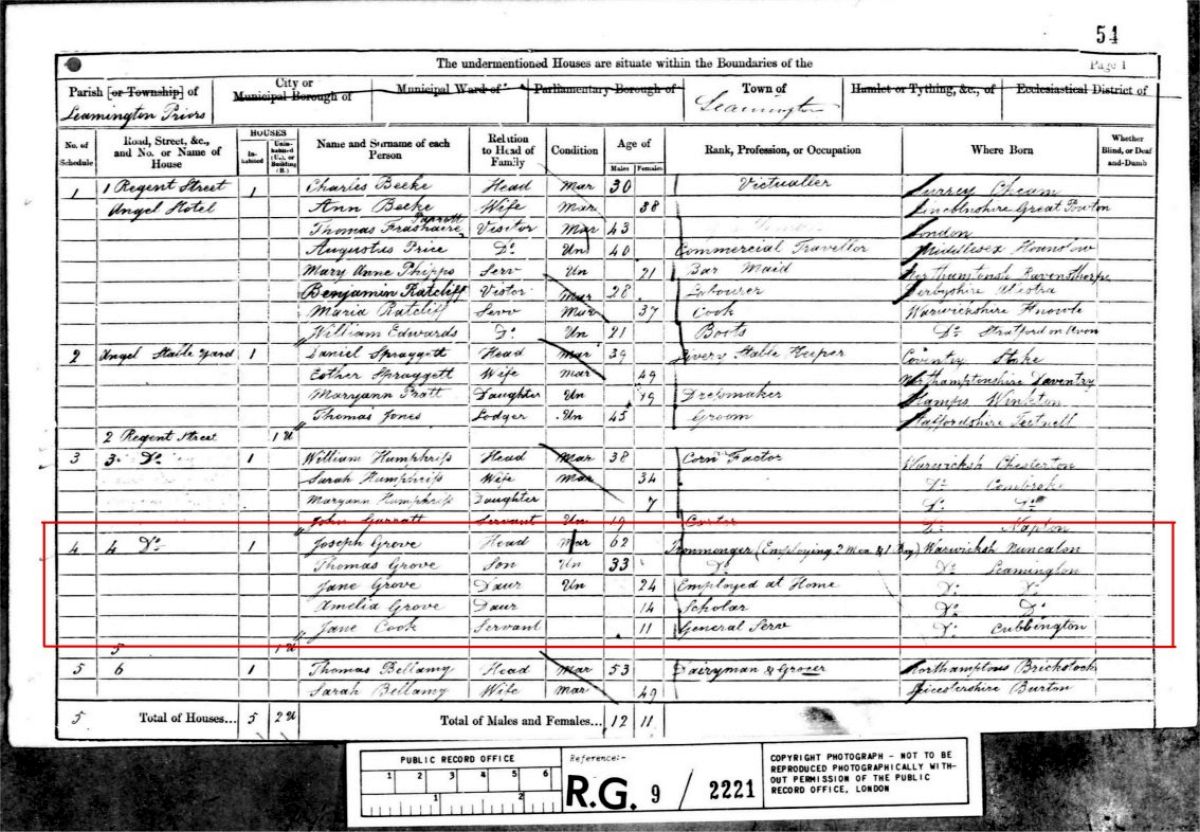 54
The undermentioned Houses are situate within the Boundaries of the
Page 1
Parish [or Township] of City or Municipal Borough of Municipal Ward of Parliamentary Borough of Town of Hamlet or Tything, &c., of Ecclesiastical District of
Leamington Priors Leamington
No. of Schedule Road, Street, &c., and No. or Name of House HOUSES Inhabited Uninhabited (U.), or Building (B.) Name and Surname of each Person Relation to Head of Family Condition Age of Males Females Rank, Profession, or Occupation Where Born Whether Blind, or Deaf-and-Dumb
1 1 Regent Street 1 Charles Beeke Head Mar 30 Victualler Surrey Cheam
Angel Hotel Ann Beeke Wife Mar 38 Lincolnshire Great
Thomas Parrott Visitor Mar 43 London
Augustus Price Do Un 40 Commercial Traveller Middlesex Hounslow
Mary Anne Phipps Serv Un 21 Bar Maid Northamtonsh Ravensthorpe
Benjamin Ratcliff Vistor Mar 28 Labourer Derbyshire
Maria Ratcliff Serv Mar 37 Cook Warwickshire Knowle
William Edwards Do Un 21 Boots Do Stratford on Avon
2 Angel Stable Yard 1 Daniel Spraggett Head Mar 39 Livery Stable Keeper Coventry Stoke
Esther Spraggett Wife Mar 49 Northamptonshire Daventry
Maryann Pratt Daughter Un 19 Dressmaker Hamps
Thomas Jones Lodger Un 45 Groom Staffordshire
2 Regent Street 1 U
3 3 Do 1 William Humphriss Head Mar 38 Corn Factor Warwicksh Chesterton
Sarah Humphriss Wife Mar 34 Do Combroke
Maryann Humphriss Daughter 7 Do Do
John Garratt Servant Un 19 Carter Do Napton
4 4 Do 1 Joseph Grove Head Mar 62 Ironmonger (Employing 2 Men & 1 Boy) Warwicksh Nuneaton
Thomas Grove Son Un 33 Do Do Leamington
Jane Grove Daur Un 24 Employed at Home Do Do
Amelia Grove Daur 14 Scholar Do Do
Jane Cook Servant 11 General Serv Do Cubbington
5 1 U
5 6 1 Thomas Bellamy Head Mar 53 Dairyman & Grocer Northamptons Brickstock
Sarah Bellamy Wife Mar 49 Leicestershire Burton
5 Total of Houses... 5 2 U Total of Males and Females... 12 11
PUBLIC RECORD OFFICE
1 2 3 4 5 6
1 2
Reference:-
R.G. 9 / 2221
COPYRIGHT PHOTOGRAPH - NOT TO BE
REPRODUCED PHOTOGRAPHICALLY WITH-
OUT PERMISSION OF THE PUBLIC
RECORD OFFICE, LONDON